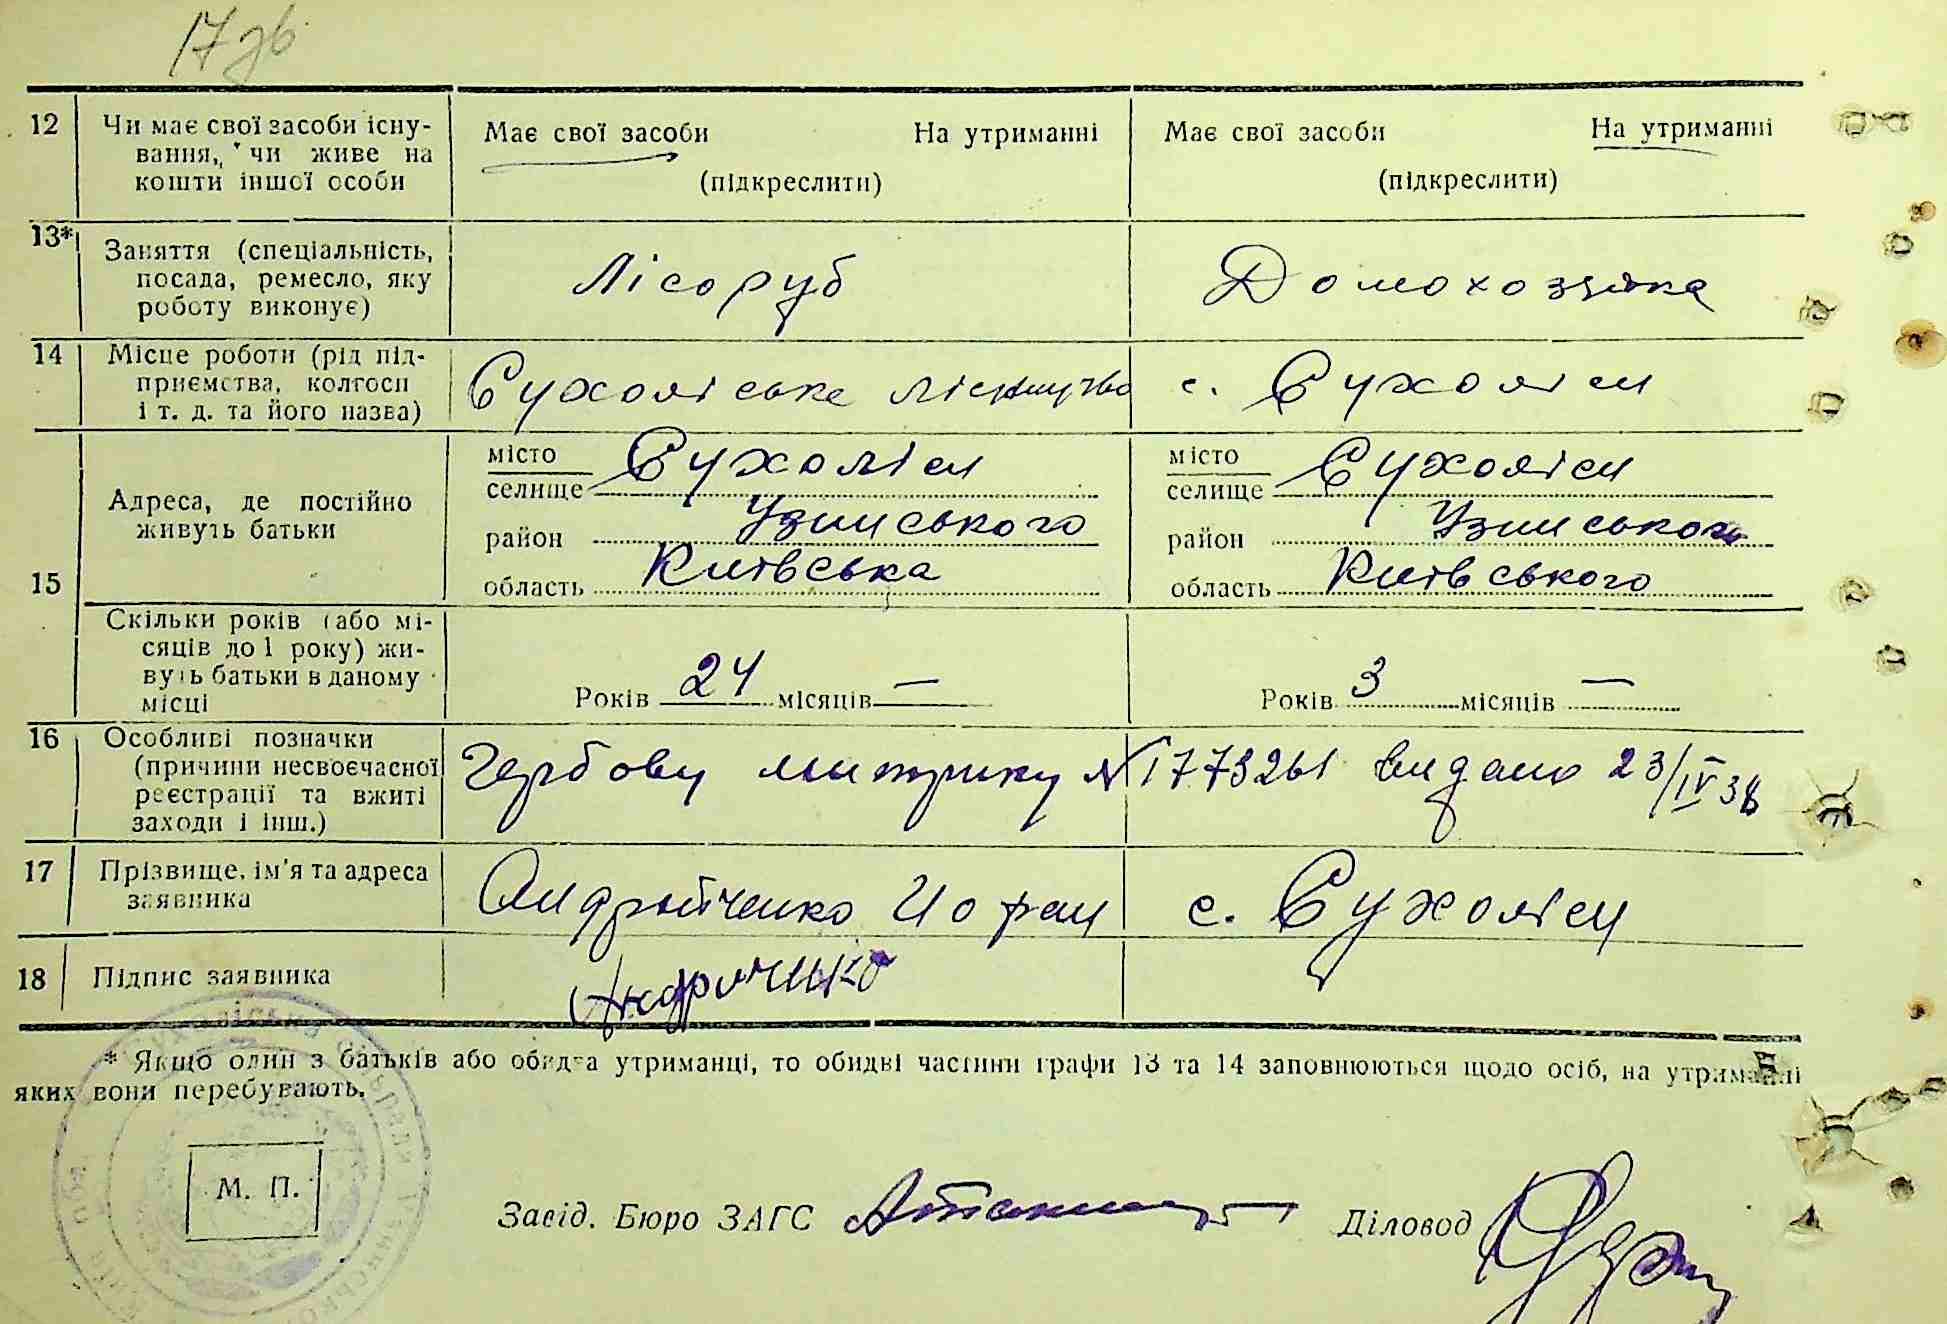 17 зв
12 Чи має свої засоби існу-
вання, чи живе на
кошти іншої особи
Має свої засоби На утриманні
(підкреслити)
Має свої засоби На утриманні
(підкреслити)
13* Заняття (спеціальність,
посада, ремесло, яку
роботу виконує)
Лісоруб
Домохозяйка
14 Місце роботи (рід під-
приємства, колгосп
і т. д. та його назва)
Сухоліське лісництво
с. Сухоліси
15
Адреса, де постійно
живуть батьки
місто
селище Сухоліси
район Узинського
область Київська
місто
селище Сухоліси
район Узинського
область Київського
Скільки років (або мі-
сяців до 1 року) жи-
вуть батьки в даному
місці
Років 24 місяців —
Років 3 місяців —
16 Особливі позначки
(причини несвоєчасної
реєстрації та вжиті
заходи і інш.)
Гербову метрику № 1773261 видано 23/IV 38
17 Прізвище, ім'я та адреса
заявника
с. Сухоліси
18 Підпис заявника
* Якщо один з батьків або обидва утриманці, то обидві частини графи 13 та 14 заповнюються щодо осіб, на утриманні
яких вони перебувають.
М. П.
Завід. Бюро ЗАГС
Діловод